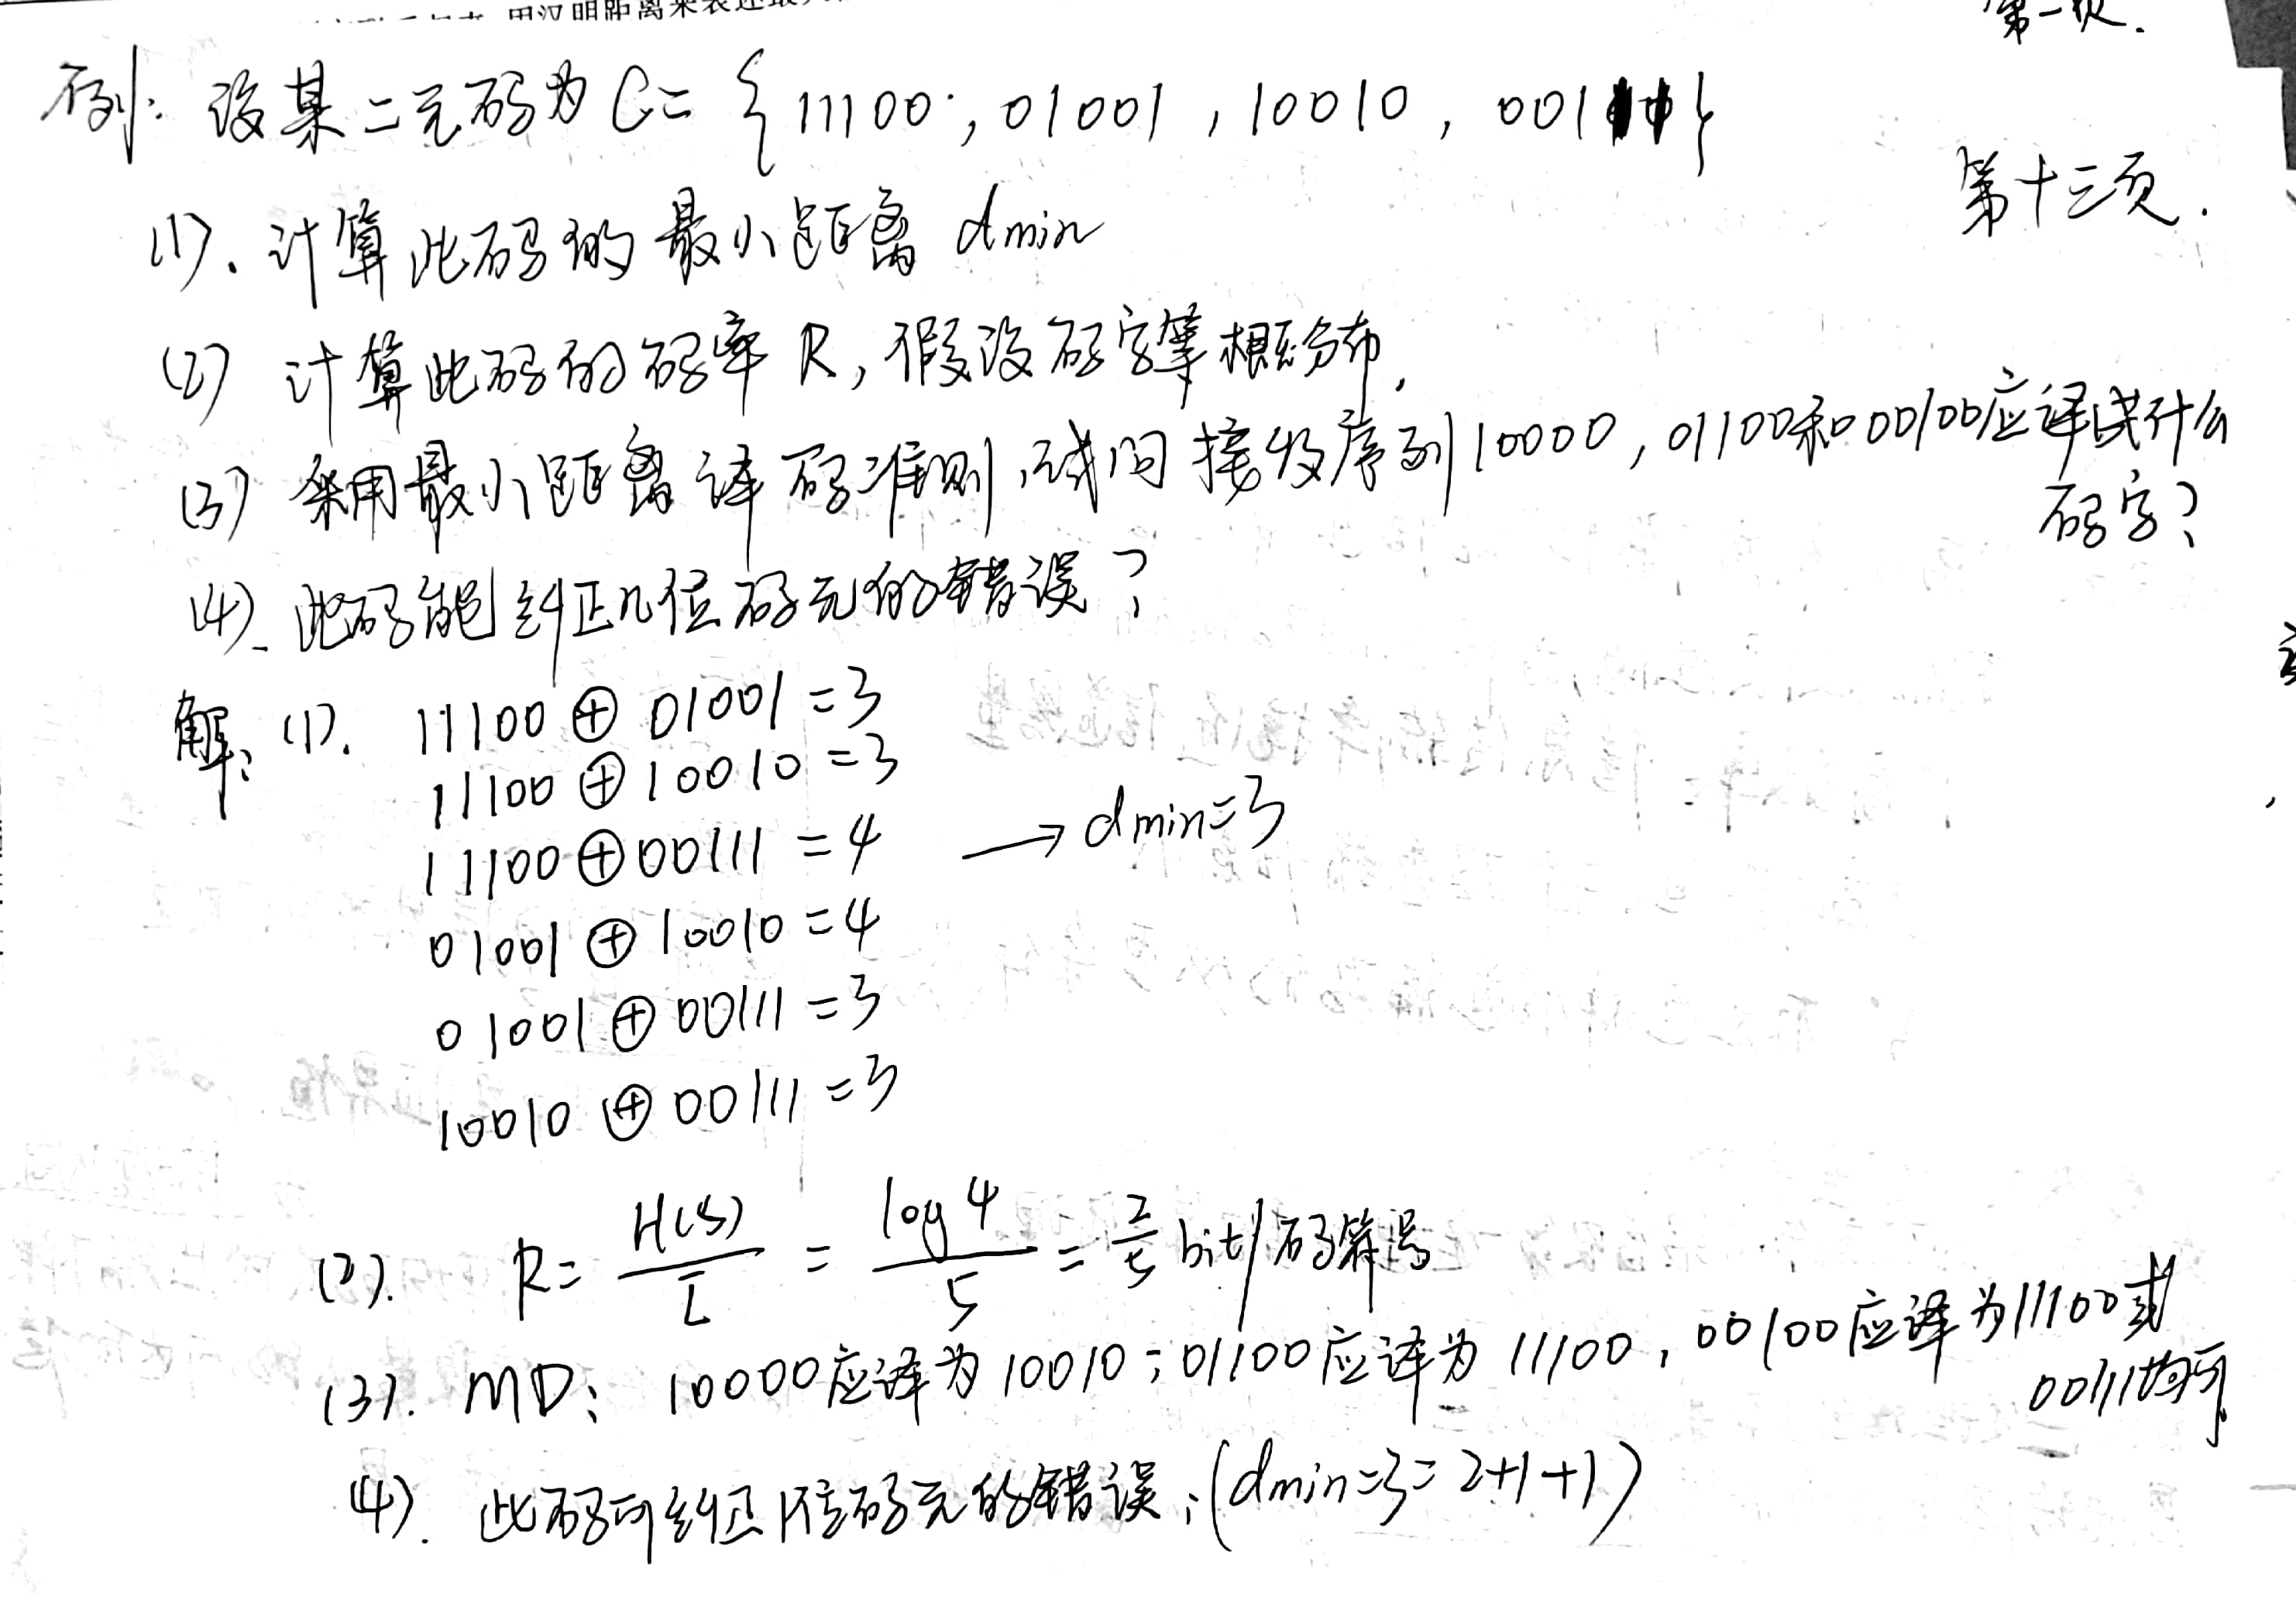 用汉明距离来表述最大
第一页.
例: 设某二元码为 C= {11100, 01001, 10010, 00111}
第十三页.
(1). 计算此码的最小距离 dmin
(2) 计算此码的码率 R, 假设码字等概分布.
(3) 采用最小距离译码准则,试问接收序列10000, 01100和00100应译成什么
码字?
(4). 此码能纠正几位码元的错误?
解: (1). 11100 ⊕ 01001 = 3
11100 ⊕ 10010 = 3
11100 ⊕ 00111 = 4 → dmin=3
01001 ⊕ 10010 = 4
01001 ⊕ 00111 = 3
10010 ⊕ 00111 = 3
(2). R = H(S)/L = log4/5 = 2/5 bit/码符号
(3). MD: 10000应译为10010; 01100应译为 11100, 00100应译为11100或
00111均可
(4). 此码可纠正1位码元的错误, (dmin=3= 2+1+1)